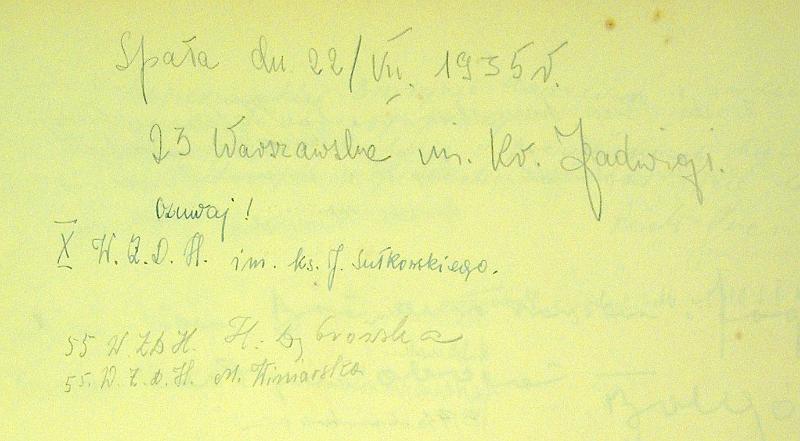 Spała dn 22/VII. 1935 r.
23 Warszawska im. Kr. Jadwigi.
Czuwaj!
X W.Ż.D.H. im. ks. J. Sułkowskiego.
55 W.ŻDH. H. Dąbrowska
55. W.Ż.D.H. M. Winiarska